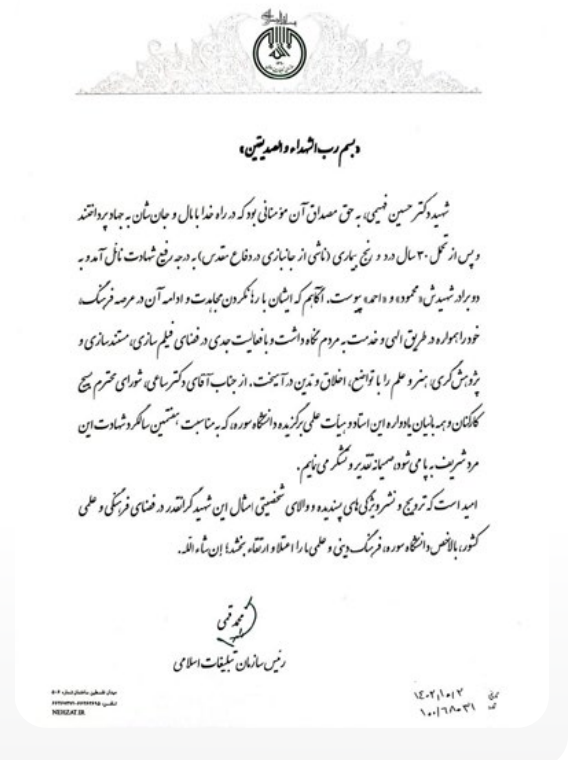 «بسم رب الشهداء و الصدیقین»
شهید دکتر حسین فهیمی، به حق مصداق آن مؤمنانی بود که در راه خدا با مال و جان‌شان به جهاد پرداختند
و پس از تحمل ۳۰ سال درد و رنج بیماری (ناشی از جانبازی در دفاع مقدس) به درجه رفیع شهادت نائل آمد و به
دو برادر شهیدش «محمود» و «احمد» پیوست. آگاهیم که ایشان با رها نکردن مجاهدت و ادامه آن در عرصه فرهنگ،
خود را همواره در طریق الهی و خدمت به مردم نگاه داشت و با فعالیت جدی در فضای فیلم سازی، مستندسازی و
پژوهش گری، هنر و علم را با تواضع، اخلاق و تدین در آمیخت. از جناب آقای دکتر ساعی، شورای محترم بسیج
کارکنان و همه بانیان یادواره این استاد و هیأت علمی برگزیده دانشگاه سوره، که به مناسبت هفتمین سالگرد شهادت این
مرد شریف به پا می‌شود، صمیمانه تقدیر و تشکر می نمایم.
امید است که ترویج و نشر ویژگی های پسندیده و والای شخصیتی امثال این شهید گرانقدر در فضای فرهنگی و علمی
کشور، بالاخص دانشگاه سوره، فرهنگ دینی و علمی ما را اعتلا و ارتقاء بخشد؛ إن شاء الله.
محمد قمی
رئیس سازمان تبلیغات اسلامی
میدان فلسطین ساختمان شماره ۵۰۶
NEHZAT.IR
۱۴۰۲/۱۰/۲
۱۰۰/۶۸۰۳۱